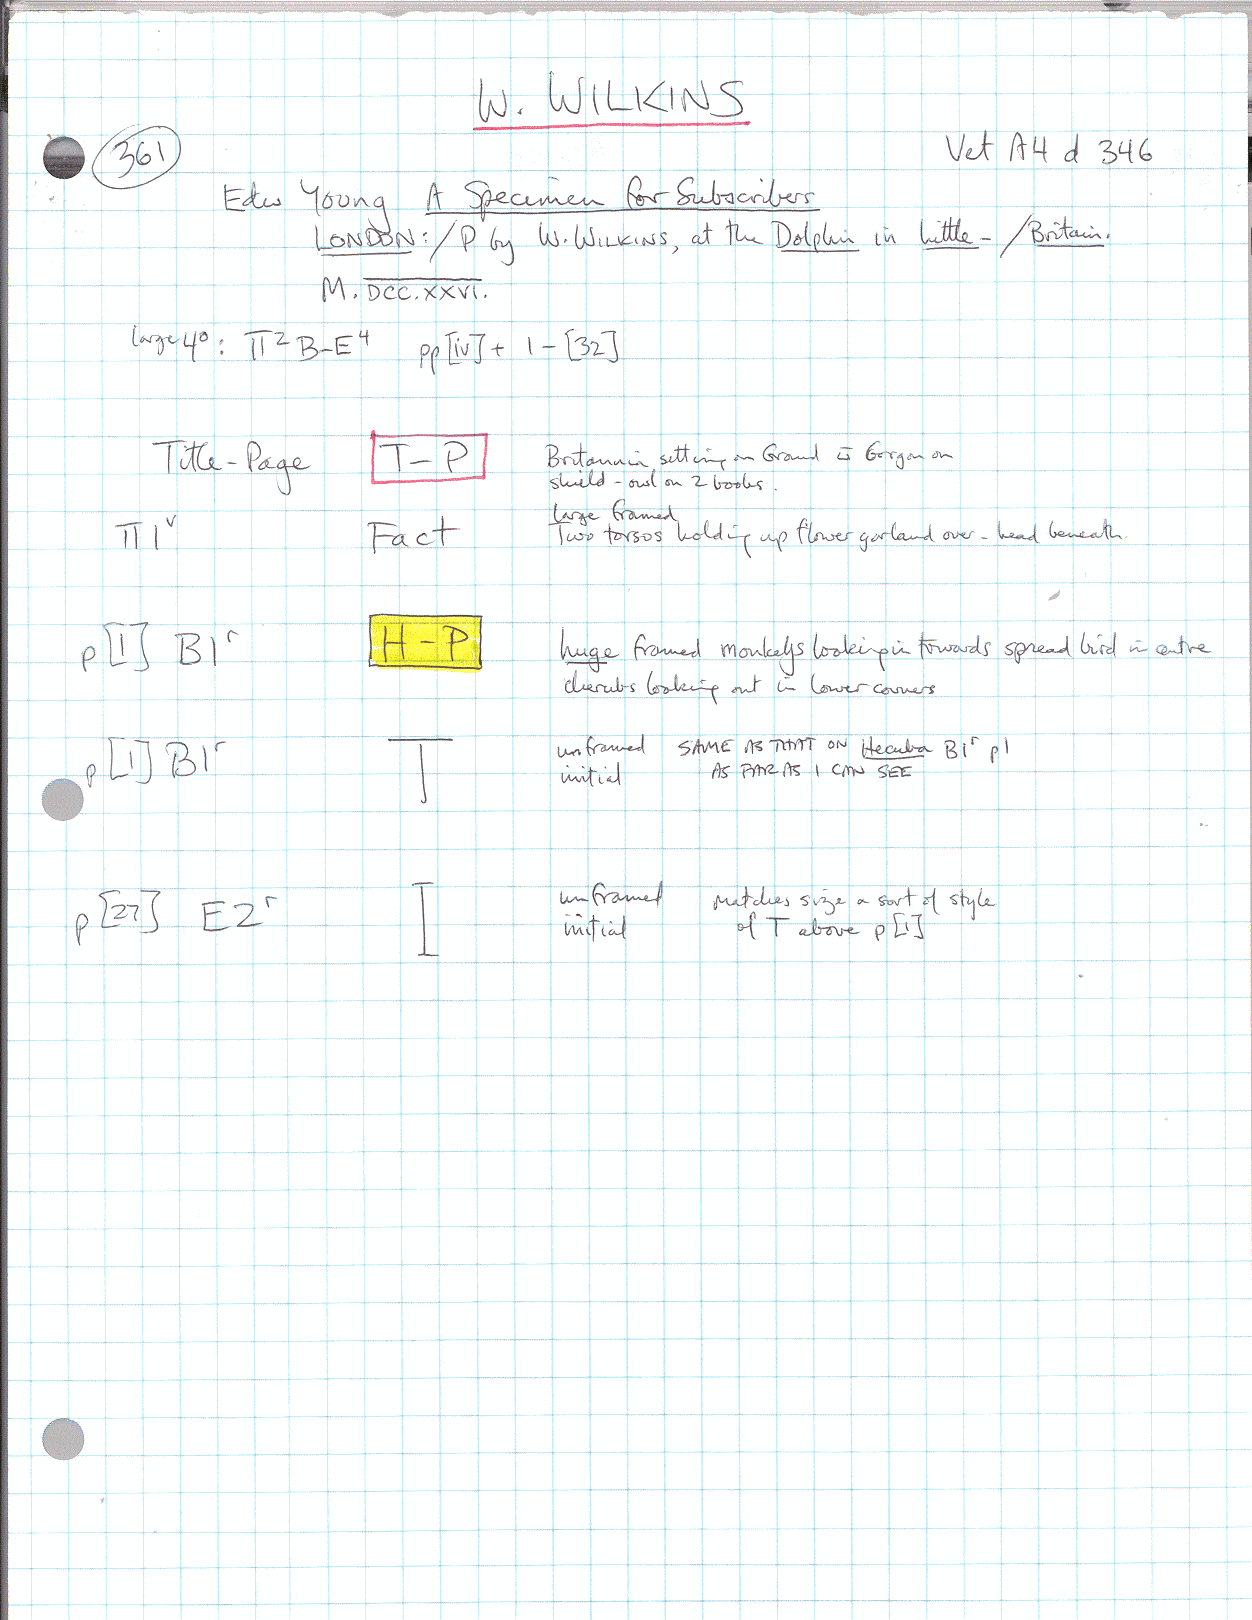 W. WILKINS
361
Vet A4 d 346
Edw Young A Specimen for Subscribers
LONDON: / P by W. WILKINS, at the Dolphin in Little- / Britain.
M.DCC.XXVI.
large 4º: π² B-E⁴ pp [iv] + 1 - [32]
Title-Page T-P Britannia sitting on Ground c̄ Gorgon on
shield - owl on 2 books.
π1ᵛ Fact large framed
Two torsos holding up flower garland over - head beneath.
p[1] B1ʳ H-P huge framed monkeys looking in towards spread bird in centre
cherubs looking out in lower corners
p[1] B1ʳ T unframed SAME AS THAT ON Hecuba B1ʳ p1
initial AS FAR AS I CAN SEE
p[27] E2ʳ I unframed matches size & sort of style
initial of T above p[1]